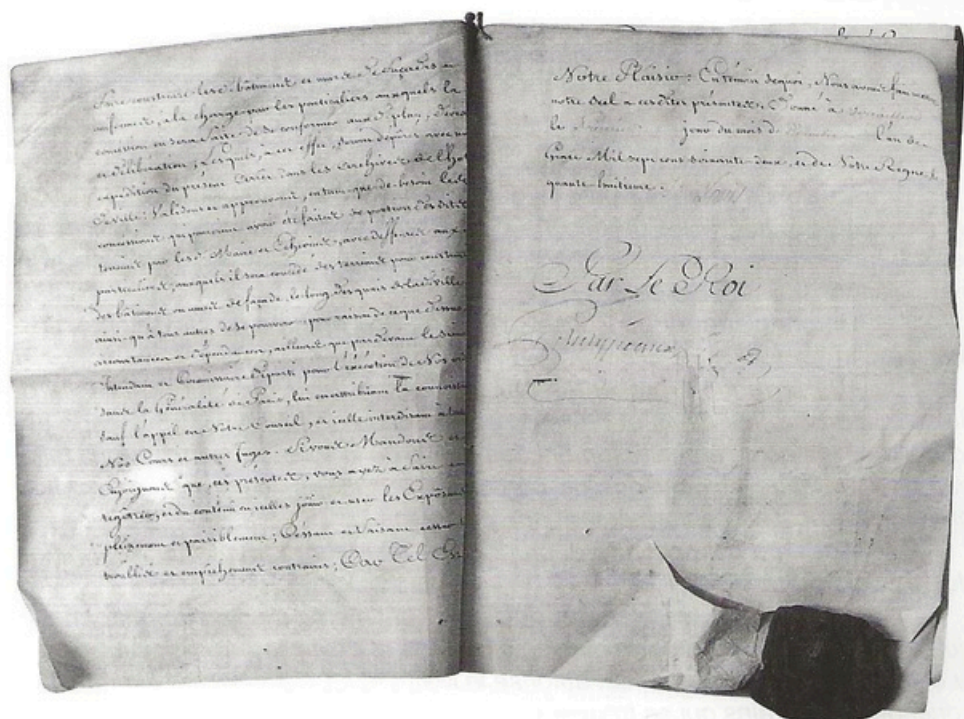 faire construire lesd. bâtimens et murs de façades en
uniformes, à la charge par les particuliers auxquels la
concession en sera faite de se conformer aux d. plan,
et délibération; Lesquels, à cet effet, seront déposés avec une
expédition du présent arrêt dans les archives de l'hot
de ville: Validons et approuvons, en tant que de besoin les d.
concessions qui peuvent avoir été faites de portion desdits
terrains par lesd. Maire et Echevins, avec deffenses aux
particuliers, auxquels il sera concédé des terrains pour construire
des bâtimens ou murs de façade, le long des quais de lad. ville
ainsi qu'à tous autres de se pourvoir, pour raison de ce que dessus,
circonstances et dépendances, ailleurs que pardevant le Sieur
Intendant et Commissaire départi pour l'exécution de Nos
dans la Généralité de Paris, lui en attribuant la
sauf l'appel en Notre Conseil, et icelle interdisant à
Nos Cours et autres Juges. Si vous Mandons et
Enjoignons que, ces présentes, vous ayez à faire
registrer, et du contenu en icelles jouir et user les Exposans
pleinement et paisiblement; Cessant et faisant cesser
troubles et empêchemens contraires; Car Tel Est
Notre Plaisir: En témoin de quoi, Nous avons fait mettre
notre Scel a ces dites présentes. Donné à Versailles
le jour du mois de l'an de
Grace Mil sept cens soixante-deux, et de Notre Regne, le
quarante-huitieme.
Par Le Roi